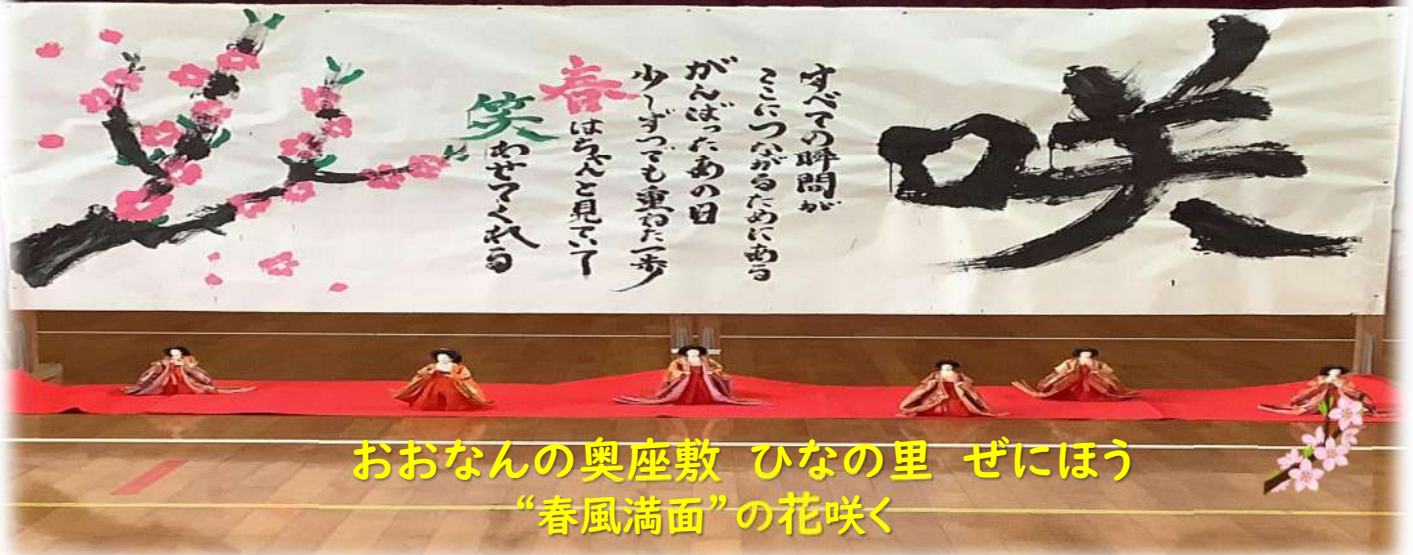 咲
すべての瞬間が
ここにつながるためにある
がんばったあの日
少しずつでも重ねた一歩
春はちゃんと見ていて
笑わせてくれる
おおなんの奥座敷 ひなの里 ぜにほう
“春風満面”の花咲く